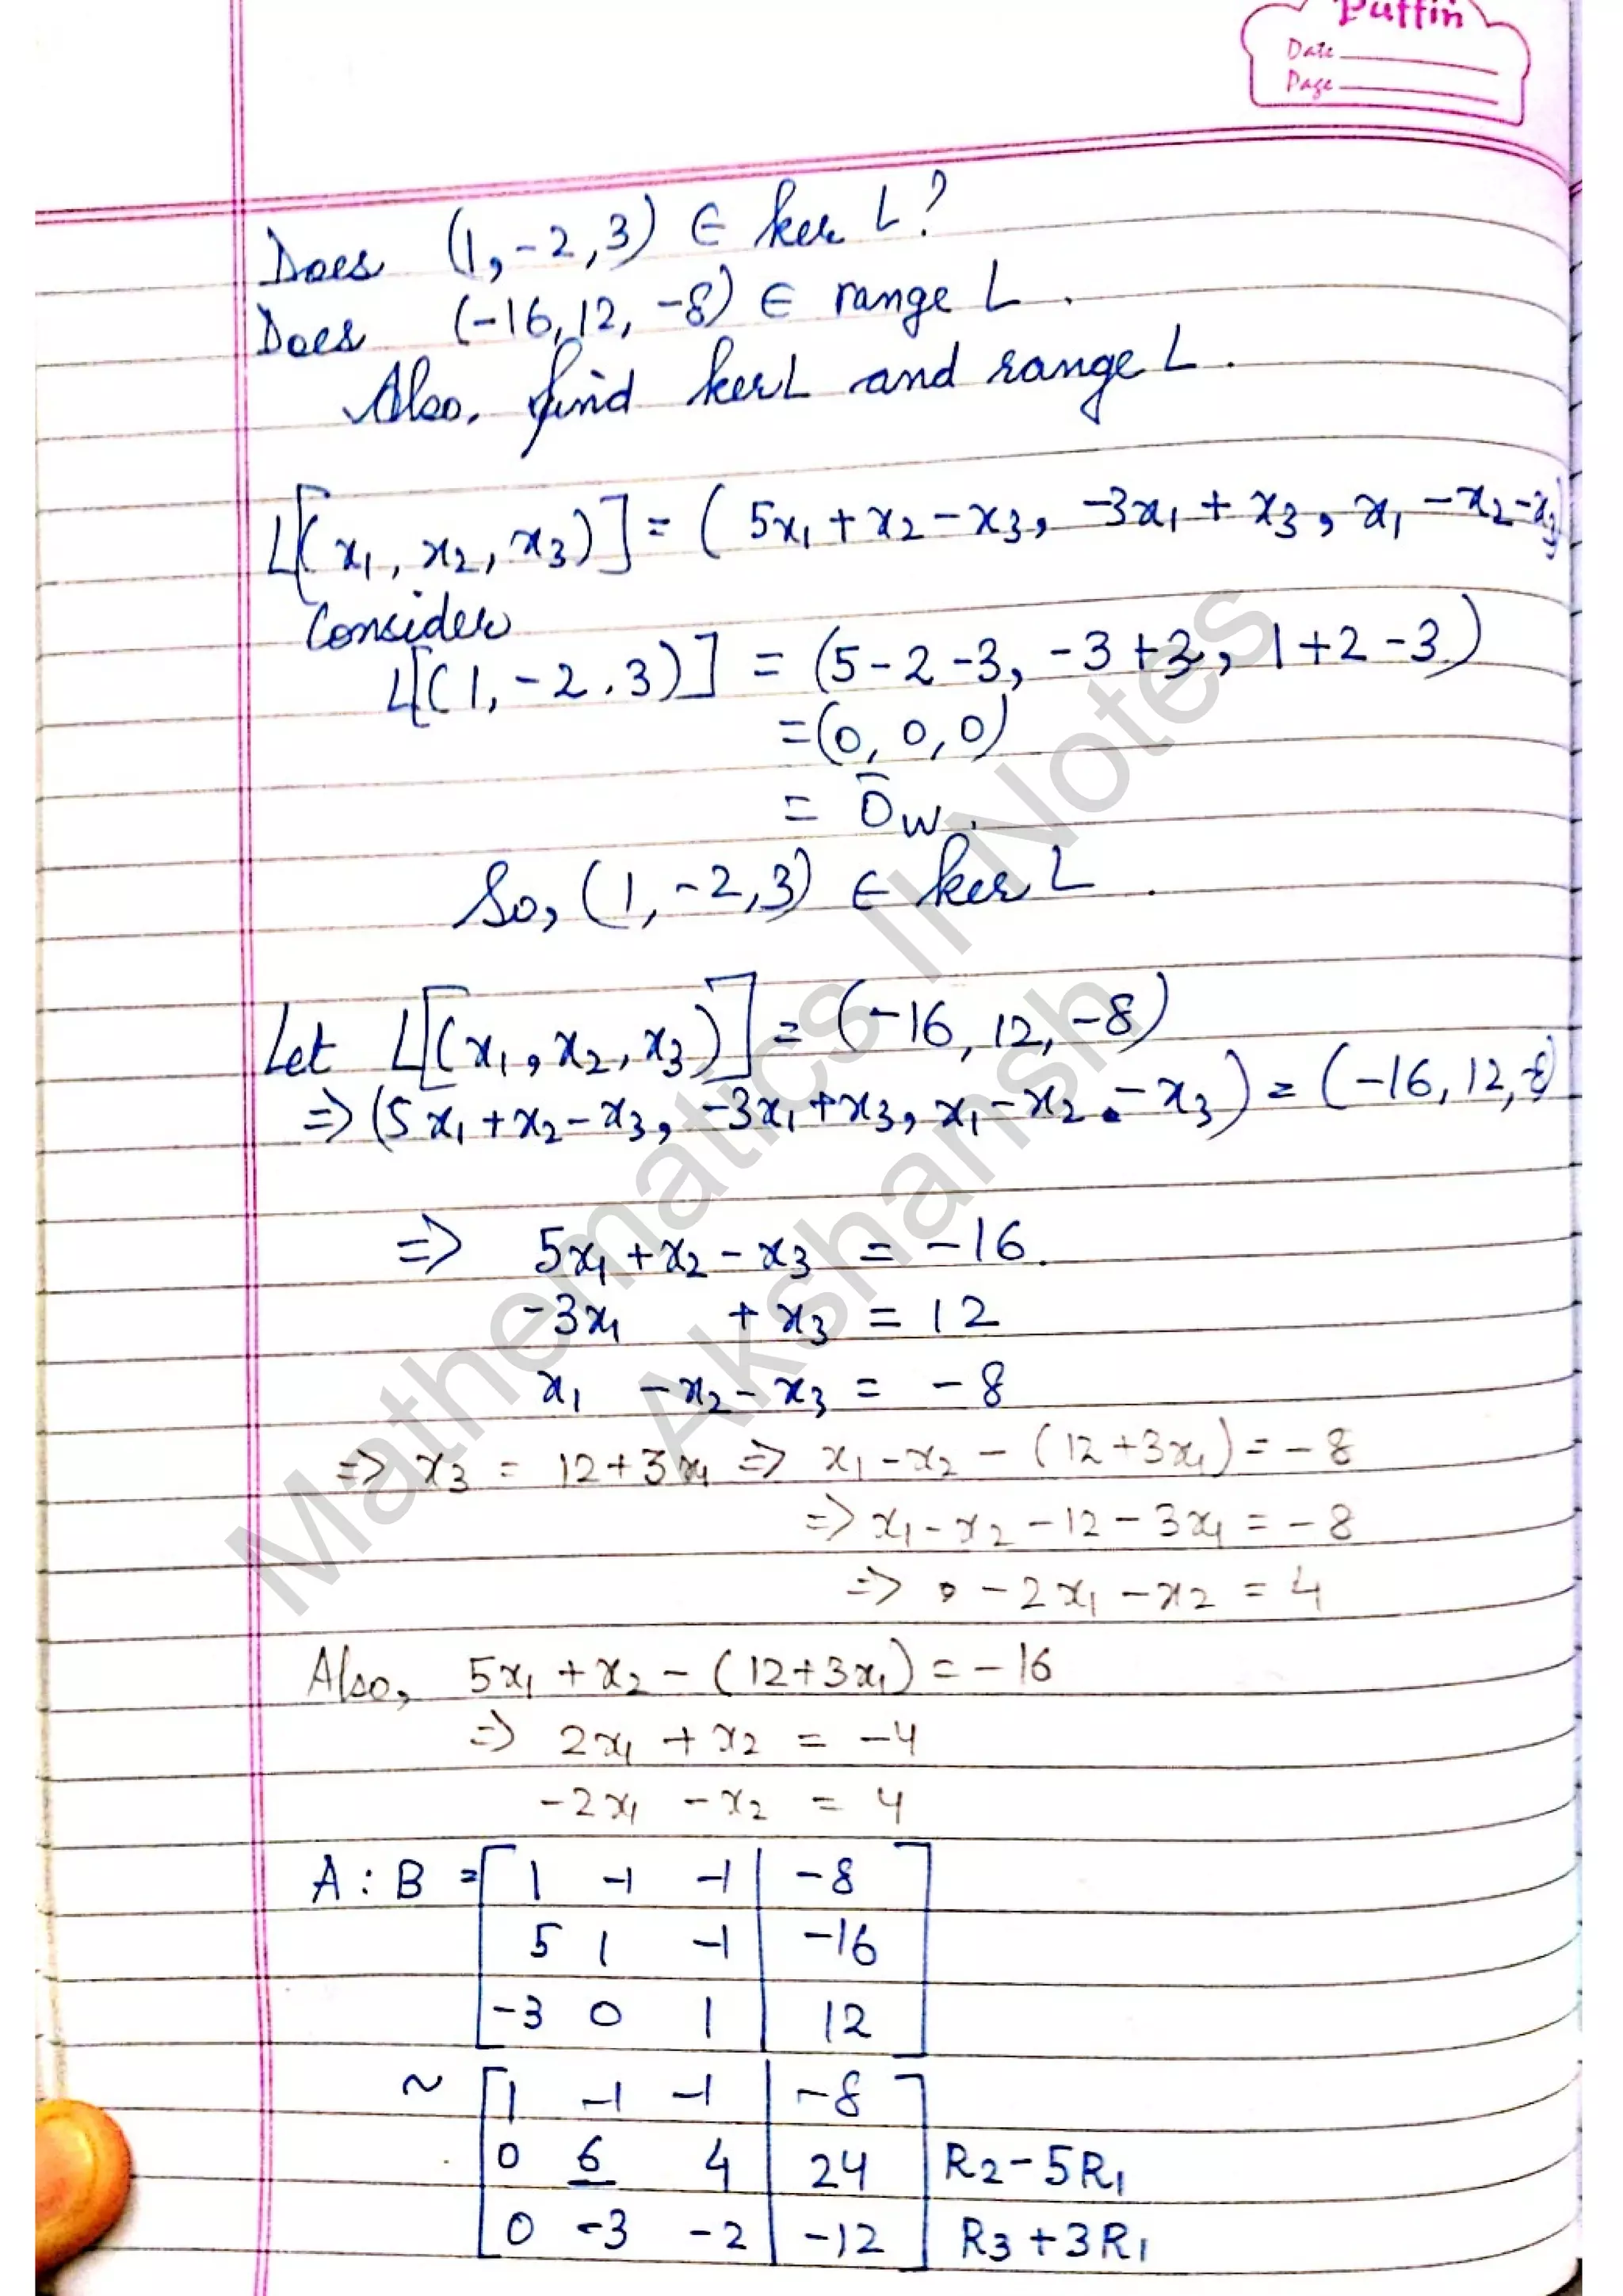 Puffin
Date
Page
Does (1, -2, 3) ∈ ker L?
Does (-16, 12, -8) ∈ range L.
Also, find ker L and range L.
L[(x₁, x₂, x₃)] = (5x₁ + x₂ - x₃, -3x₁ + x₃, x₁ - x₂ - x₃)
Consider
L[(1, -2, 3)] = (5 - 2 - 3, -3 + 3, 1 + 2 - 3)
= (0, 0, 0)
= 0̄w.
So, (1, -2, 3) ∈ ker L.
Let L[(x₁, x₂, x₃)] = (-16, 12, -8)
=> (5x₁ + x₂ - x₃, -3x₁ + x₃, x₁ - x₂ - x₃) = (-16, 12, -8)
=> 5x₁ + x₂ - x₃ = -16.
-3x₁ + x₃ = 12
x₁ - x₂ - x₃ = -8
=> x₃ = 12 + 3x₁ => x₁ - x₂ - (12 + 3x₁) = -8
=> x₁ - x₂ - 12 - 3x₁ = -8
=> -2x₁ - x₂ = 4
Also, 5x₁ + x₂ - (12 + 3x₁) = -16
=> 2x₁ + x₂ = -4
-2x₁ - x₂ = 4
A : B = [ 1 -1 -1 | -8 ]
5 1 -1 | -16
-3 0 1 | 12
~ [ 1 -1 -1 | -8 ]
0 6 4 | 24 R₂ - 5R₁
0 -3 -2 | -12 R₃ + 3R₁
Mathematics II Notes
Akshansh